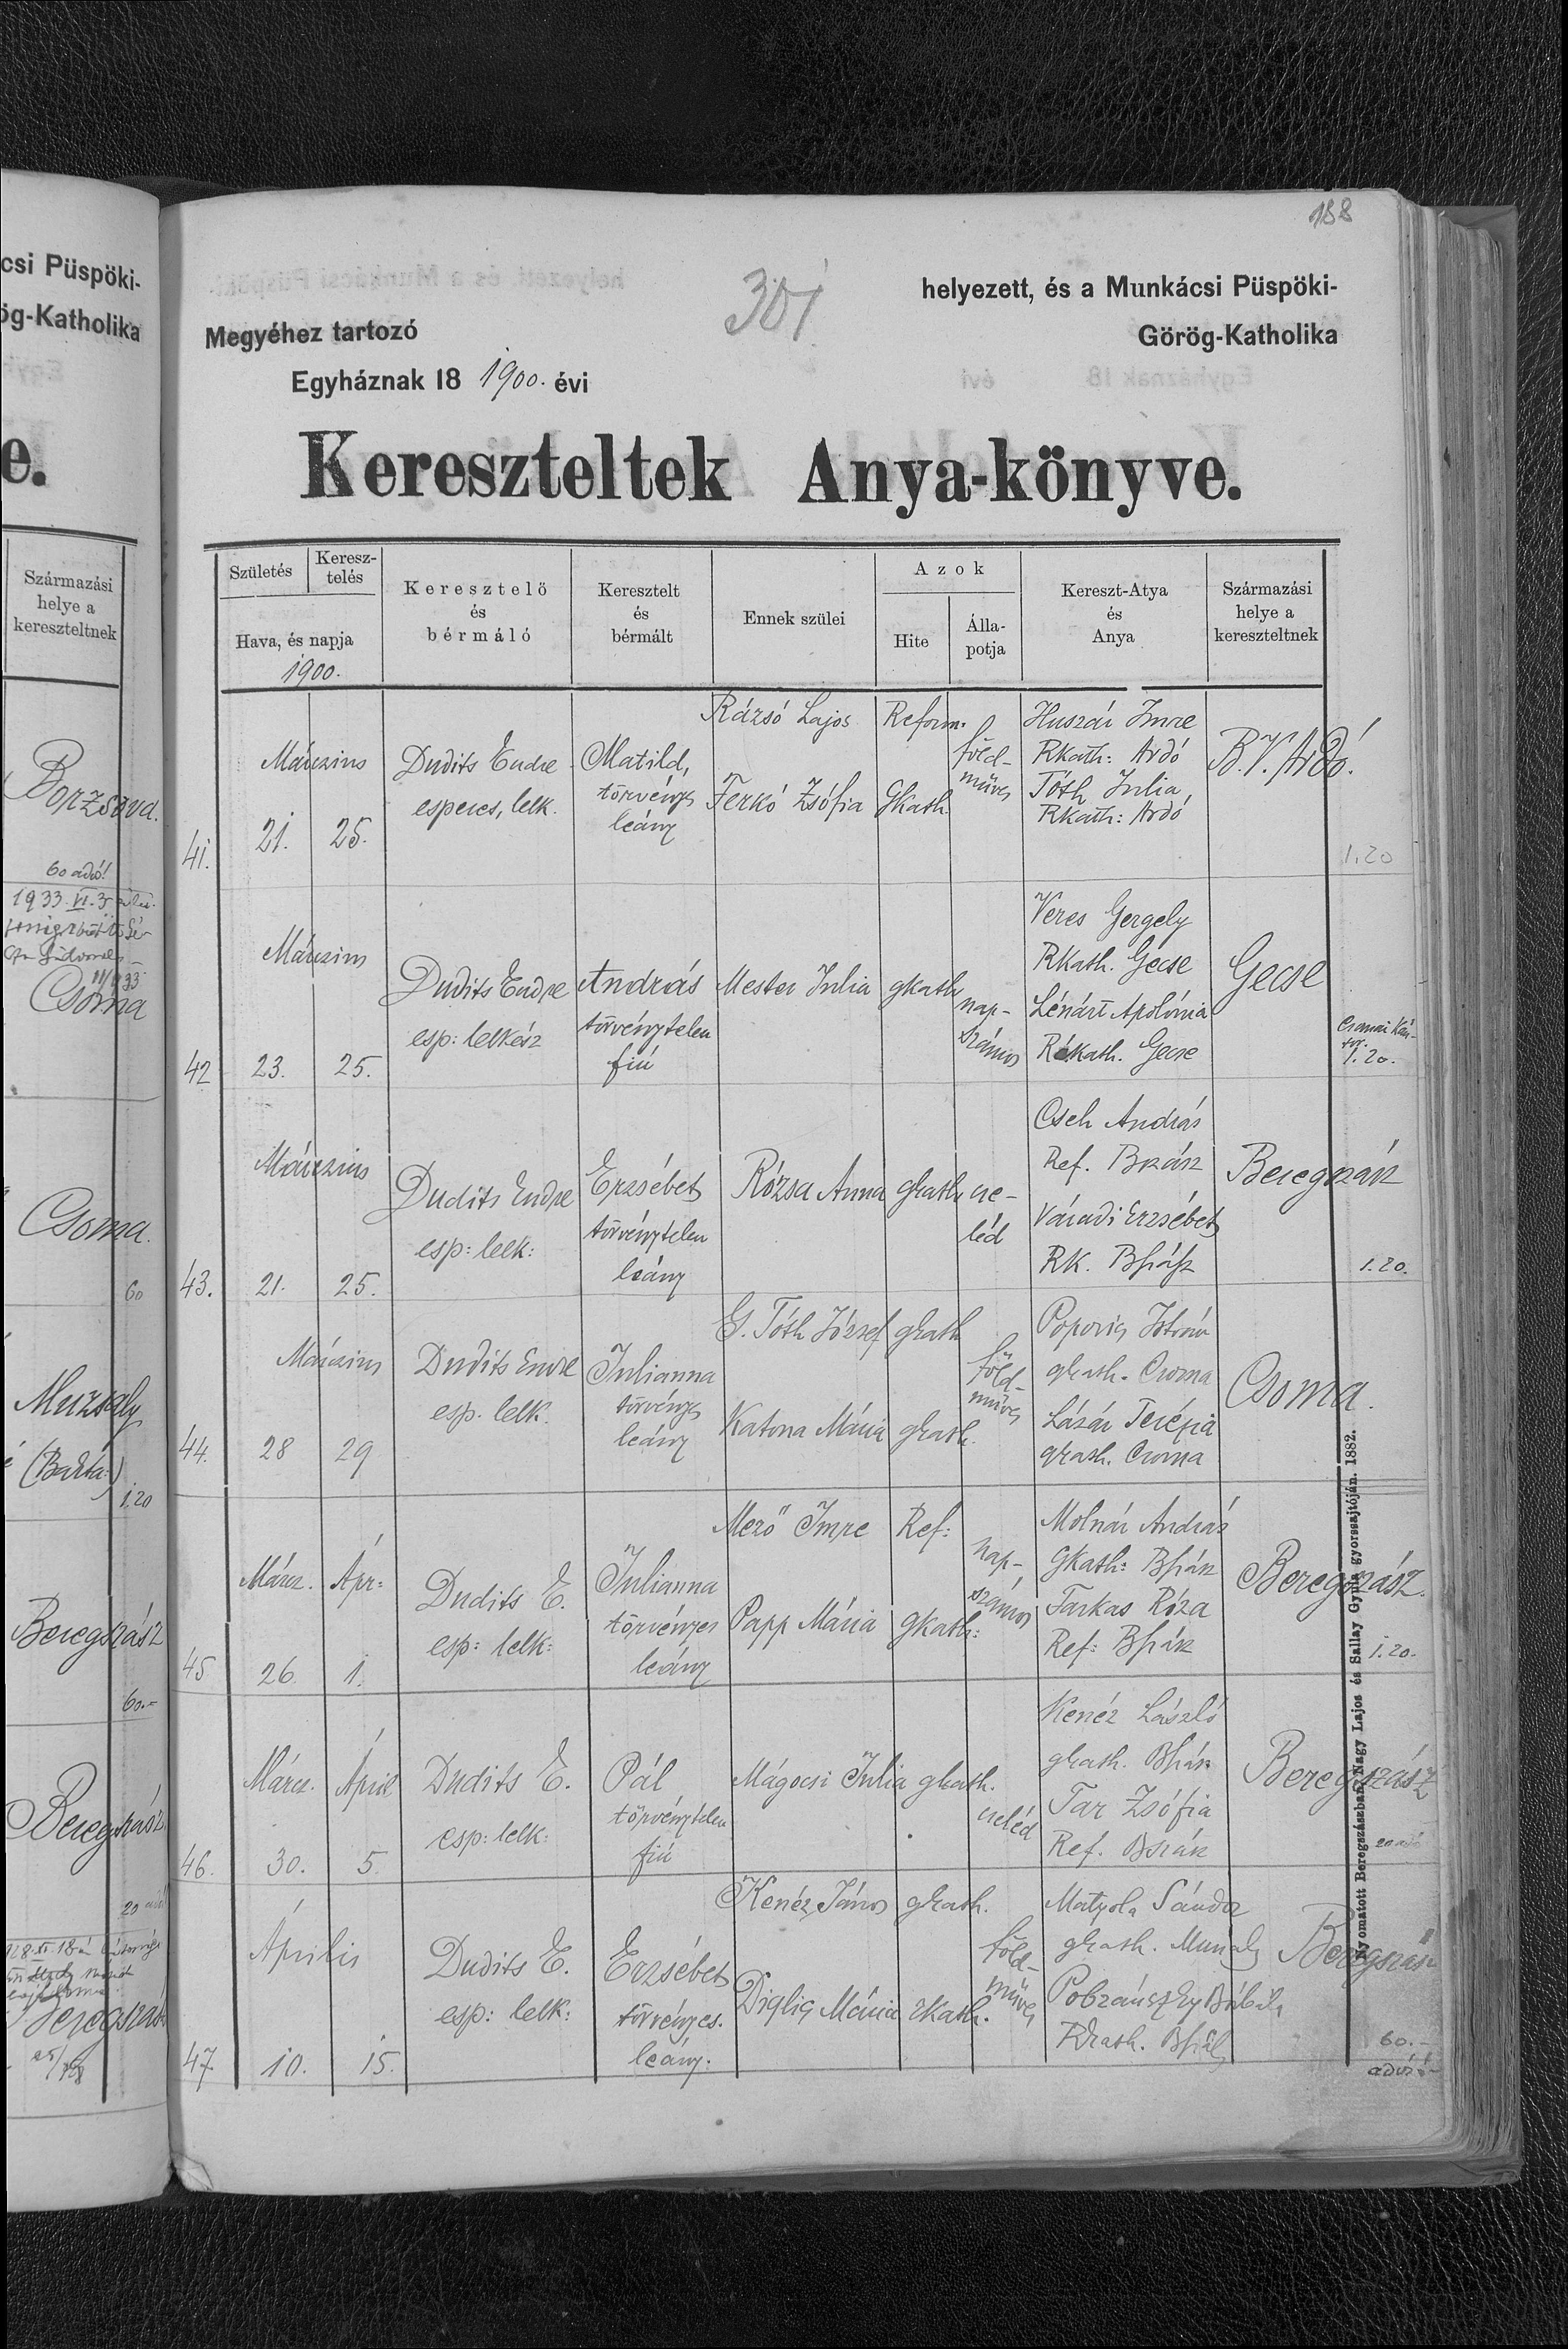 csi Püspöki-
ög-Katholika
e.
Származási
helye a
kereszteltnek
Borzsova.
60 adó!
1933. VI. 3
Csoma
Csoma.
60
Muzsaly
(Bakta)
1.20
Beregszász
60.-
Beregszász
Beregszász
188
301
helyezett, és a Munkácsi Püspöki-
Megyéhez tartozó
Görög-Katholika
Egyháznak 18 1900. évi
Kereszteltek Anya-könyve.
Születés
Keresz-
telés
Hava, és napja
1900.
Keresztelő
és
bérmáló
Keresztelt
és
bérmált
Ennek szülei
Azok
Hite
Álla-
potja
Kereszt-Atya
és
Anya
Származási
helye a
kereszteltnek
41.
Márczius
21. 25.
Dudits Endre
esperes, lelk.
Matild,
törvényes
leány
Rázsó Lajos Reform.
Ferkó Zsófia Gkath.
föld-
műves
Huszár Imre
Rkath: Ardó
Tóth Julia,
Rkath: Ardó
B.V. Ardó.
1.20
42
Márczius
23. 25.
Dudits Endre
esp: lelkész
András
törvénytelen
fiú
Mester Julia gkath
nap-
számos
Veres Gergely
Rkath. Gecse
Lénárt Apolónia
Rkath. Gecse
Gecse
1.20.
43.
Márczius
21. 25.
Dudits Endre
esp: lelk:
Erzsébet
törvénytelen
leány
Rózsa Anna gkath
cse-
léd
Cseh András
Ref. Bszász
Váradi Erzsébet
RK. Bszász
Beregszász
1.20.
44.
Márczius
28 29
Dudits Endre
esp. lelk.
Julianna
törvényes
leány
G. Tóth József gkath
Katona Mária gkath.
föld-
műves
Popovics István
gkath. Csoma
Lázár Terézia
gkath. Csoma
Csoma.
45
Márcz. Ápr:
26. 1.
Dudits E.
esp: lelk:
Julianna
törvényes
leány
Mező Imre Ref:
Papp Mária gkath:
nap-
számos
Molnár András
Gkath: Bszász
Farkas Róza
Ref: Bszász
Beregszász.
1.20.
46.
Márcz. Ápril
30. 5.
Dudits E.
esp: lelk:
Pál
törvénytelen
fiú
Mágocsi Julia gkath.
cseléd
Kenéz László
gkath. Bszász
Tar Zsófia
Ref. Bszász
Beregszász
20 adó
47
Április
10. 15.
Dudits E.
esp: lelk:
Erzsébet
törvényes.
leány.
Kenéz János gkath.
Mária rkath.
föld-
műves
Matyola Sándor
gkath.
Rkath.
Beregszász
60.-
adós!-
Nyomatott Beregszászban, Nagy Lajos és Sallay Gyula gyorssajtóján. 1882.